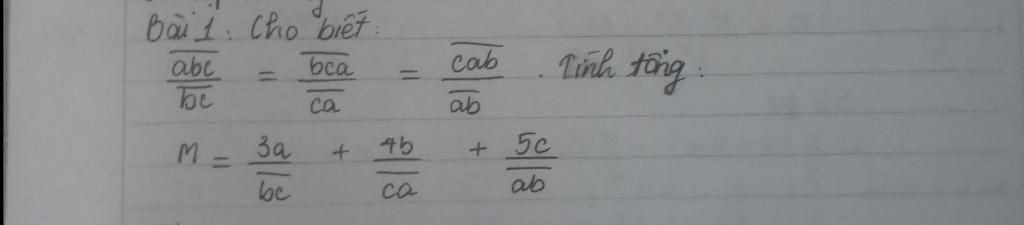 Bài 1: Cho biết:
\frac{\overline{abc}}{\overline{bc}} = \frac{\overline{bca}}{\overline{ca}} = \frac{\overline{cab}}{\overline{ab}} . Tính tổng:
M = \frac{3a}{\overline{bc}} + \frac{4b}{\overline{ca}} + \frac{5c}{\overline{ab}}